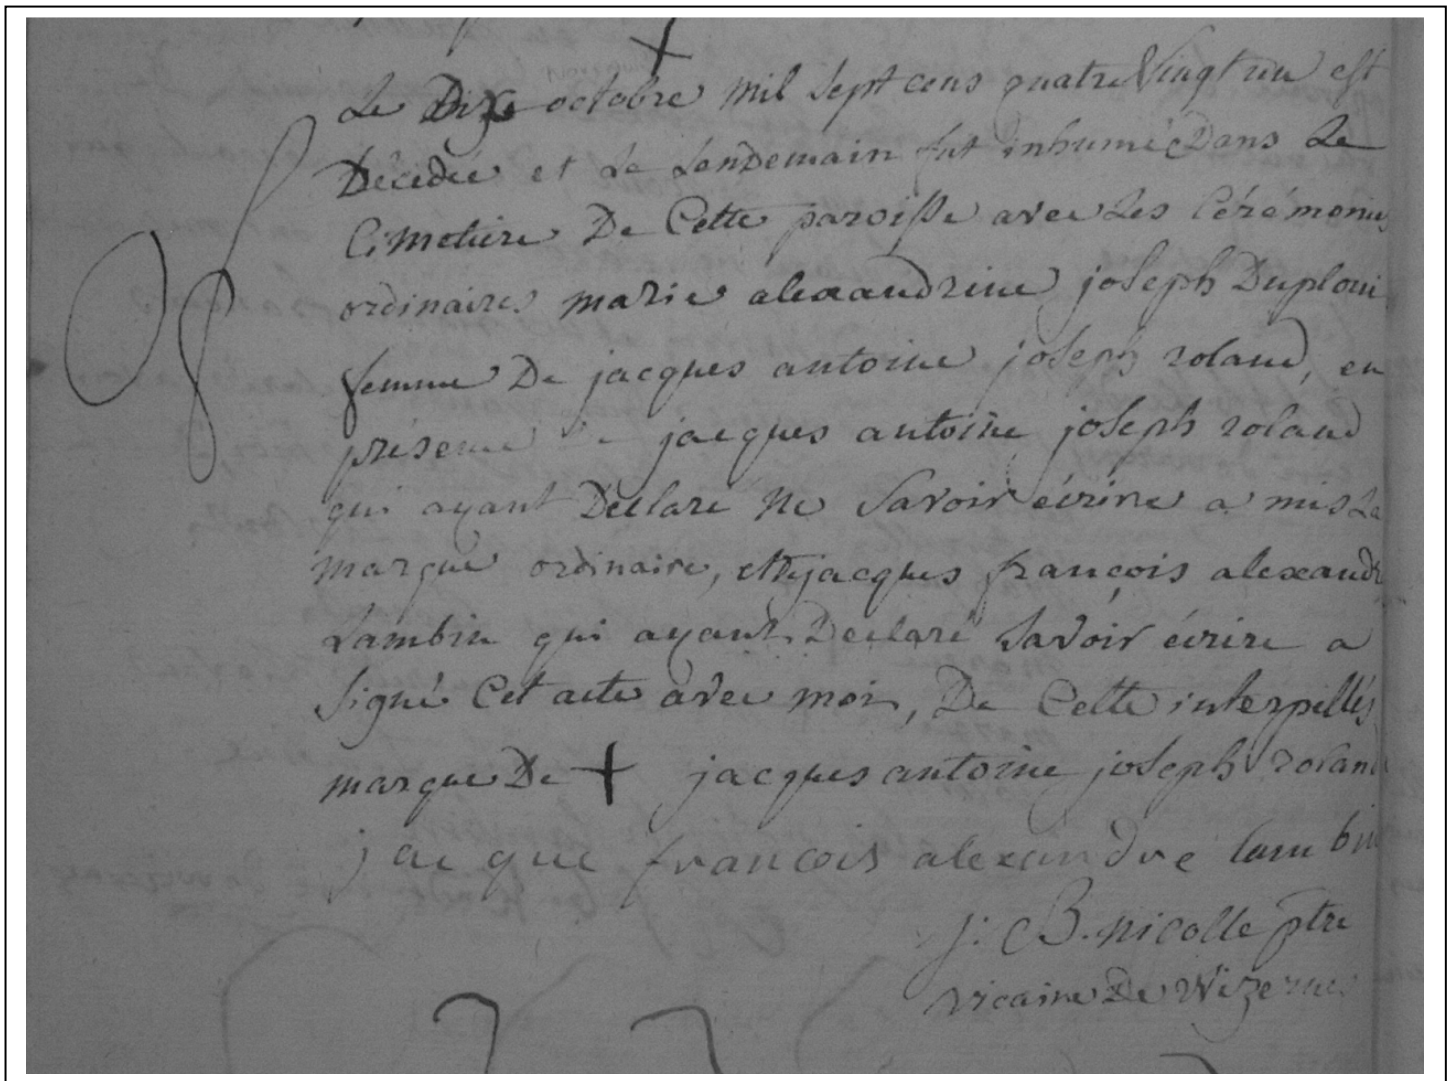 Le Dixe octobre mil sept cens quatre Vingt un est
Décédée et Le Lendemain fut inhumé Dans Le
Cimetiere De Cette paroisse avec Les Cérémonies
ordinaires marie alexandrine joseph Duploui
femme De jacques antoine joseph roland, en
présence De jacques antoine joseph roland
qui ayant Declaré Ne Savoir écrire a mis Sa
marque ordinaire, et De jacques françois alexandre
Lambin qui ayant Declaré Savoir écrire a
Signé Cet acte avec moi, De Cette interpellés
marque De + jacques antoine joseph roland
jacque francois alexandre lambin
J: B. nicolle ptre
vicaire De Wizernes